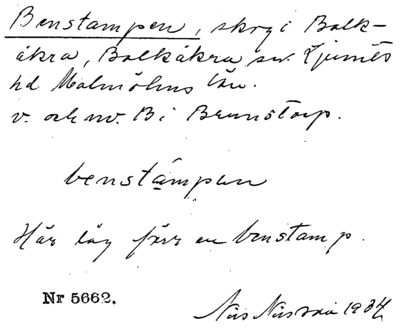 Benstampen, skog i Balk-
åkra, Balkåkra sn. Ljunits
hd Malmöhus län.
v. och nv. B i Brunstorp.
benstampen
Här låg förr en benstamp.
Nr 5662.
Nils 1934